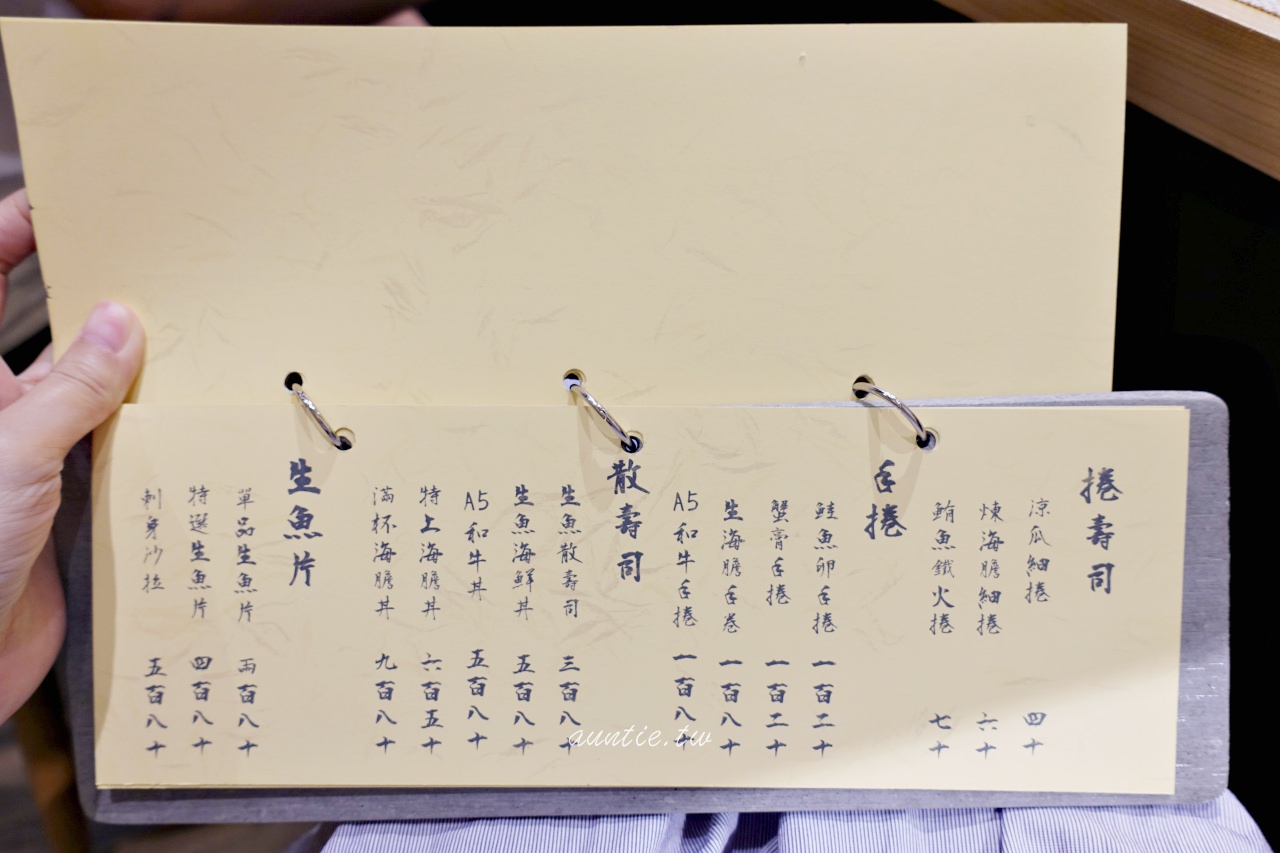 捲壽司
涼瓜細捲 四十
煉海膽細捲 六十
鮪魚鐵火捲 七十
手捲
鮭魚卵手捲 一百二十
蟹膏手捲 一百二十
生海膽手卷 一百八十
A5和牛手捲 一百八十
散壽司
生魚散壽司 三百八十
生魚海鮮丼 五百八十
A5和牛丼 五百八十
特上海膽丼 六百五十
滿杯海膽丼 九百八十
生魚片
單品生魚片 兩百八十
特選生魚片 四百八十
刺身沙拉 五百八十
auntie.tw